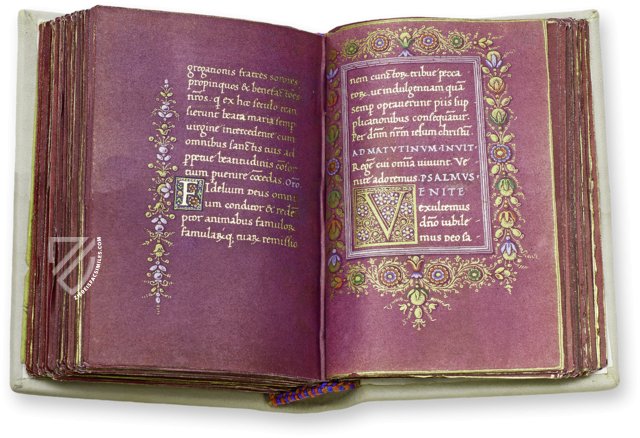 gregationis fratres sorores
propinquos & benefactores
nr̄os. q ex hac seculo tran
sierunt beata maria semp
uirgine intercedente cum
omnibus sanctis tuis ad
ppetue beatitudinis consor
tium peruenire cōcedas. Oro
Fidelium deus omni
um conditor & redē
ptor animabus famuloꝝ
famularuq. tuaꝝ remissio
nem cunctoꝝ tribue pecca
toꝝ. ut indulgentiam quā
semp optauerunt piis sup
plicationibus consequātur.
Per dn̄m nr̄m iesum christū
AD MATVTINVM INVIT
Regē cui omīa uiuunt. Ve
nite adoremus. PSALMVS
VENITE
exultemus
dn̄o iubile
mus deo sa
FACSIMILES.COM